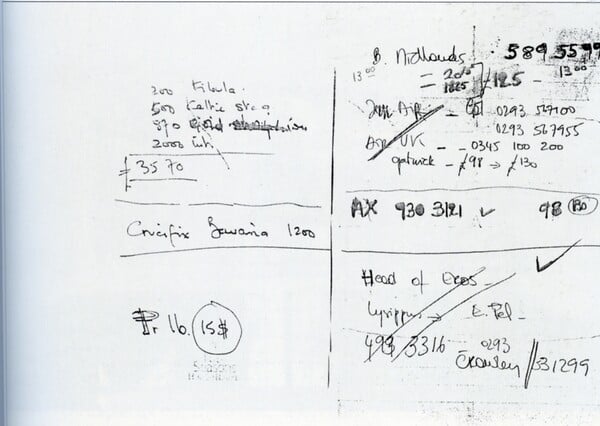 200 Fibula.
500 Celtic stag
870 Gold
2000
= 3570
Crucifix Bavaria 1200
Pr lb. 15$
Seasons
B. Midlands • 589 5599
13 00 = 20 15 13 00
= 1825 £125 -
Air - 0293 567100
0293 567955
Air UK - - 0345 100 200
gatwick - £98 → £130
AX 930 3121 ✓ 98 130
Head of Eros - ✓
Lysippus → E. Pal -
493 3316 0293
Crawley 531299